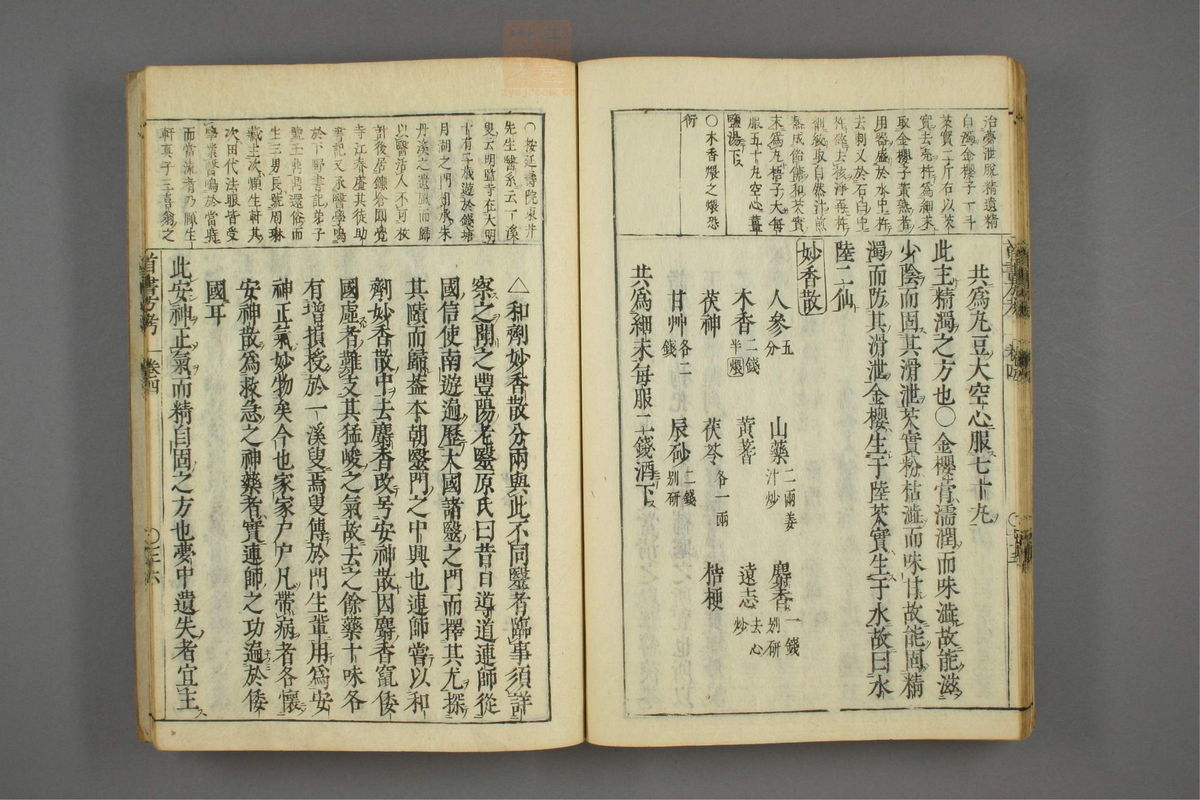 治夢泄脫精遺精
白濁金櫻子一斗
芡實二斤右以芡
實去壳杵爲細末
取金櫻子黃熟者
用器盛於水中杵
去刺又於石臼中
杵破去核淨再杵
細絞取自然汁煎
慕成俗餳和芡實
末爲丸梧子大每
服五十丸空心薑
鹽湯下
〇木香煨之煨恐
衍
共爲丸豆大空心服七十丸
此主精濁之方也〇金櫻膏濡潤而味澁故能滋
少陰而固其滑泄芡實粉枯澁而味甘故能固精
濁而防其滑泄金櫻生于陸芡實生于水故曰水
陸二仙
妙香散
人參五分 山藥二兩姜汁炒 麝香一錢別研
木香二錢半煨 黃蓍 遠志去心炒
茯神 茯苓各一兩 桔梗
甘艸各二錢 辰砂二錢別研
共爲細末每服二錢酒下
〇按延壽院東井
先生醫系云一溪
叟云明監寺在大明
十有二歲遊於錢塘
月湖之門相承朱
丹溪之遺風而歸
以醫活人不可枚
計後居鎌倉圓覺
寺江春庵其徒助
書記又承醫學鳴
於下野書記弟子
生三男長號周琳
次田代法眼皆受
學業醫鳴於當時
軒真子三喜翁之
△和劑妙香散分兩與此不同醫者臨事須詳
察之聞之豐陽老醫原氏曰昔日導道連師從
國信使南遊遍歷大國諸醫之門而擇其尤探
其賾而歸蓋本朝醫門之中興也連師嘗以和
劑妙香散中去麝香改号安神散因麝香竄倭
國虛者難支其猛峻之氣故去之餘藥十味各
有增損授於一溪叟焉叟傳於門生輩用爲安
神正氣妙物矣今也家家戶戶凡帶病者各懷
安神散爲救急之神藥者實連師之功遍於倭
國耳
此安神正氣而精自固之方也夢中遺失者宜主
首書方考 卷四 〇三十六